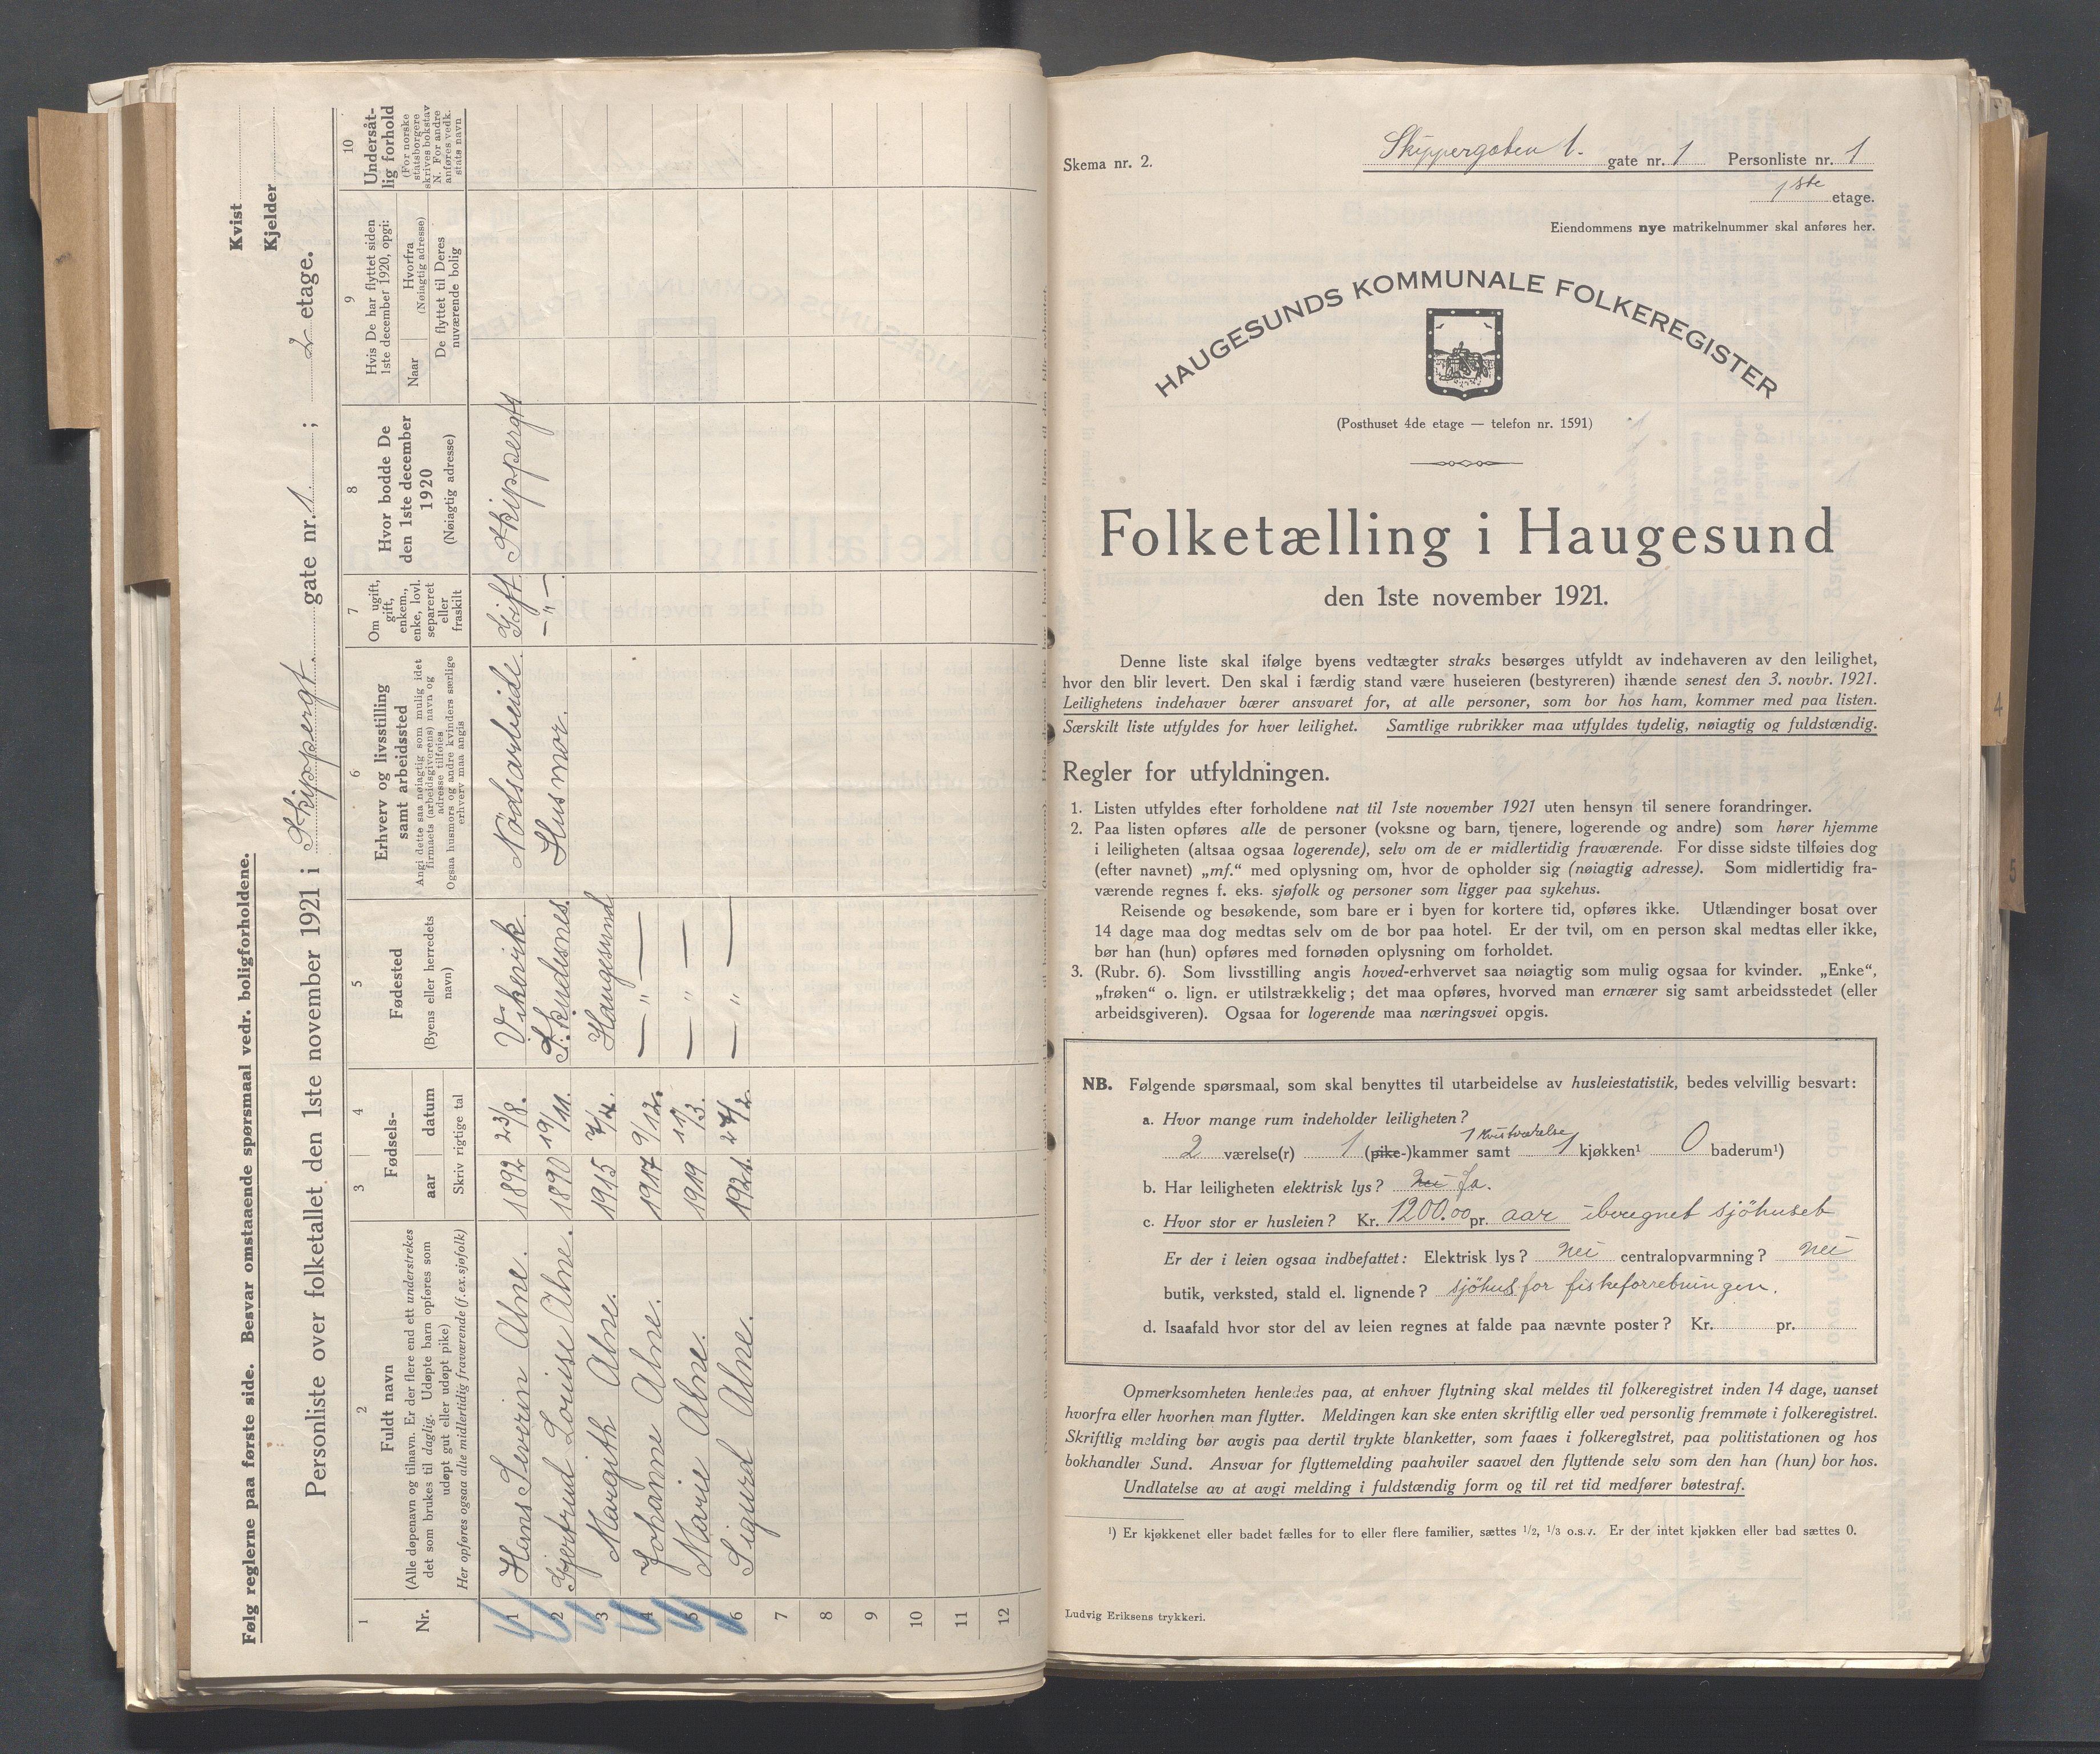 Følg reglerne paa første side. Besvar omstaaende spørsmaal vedr. boligforholdene.
Kvist
Kjelder
Personliste over folketallet den 1ste november 1921 i Skippergt. gate nr. 1 ; 2 etage.
1 2 3 4 5 6 7 8 9 10
Nr.
Fuldt navn
(Alle døpenavn og tilnavn. Er der flere end ett understrekes
det som brukes til daglig. Udøpte barn opføres som
udøpt gut eller udøpt pike)
Her opføres ogsaa alle midlertidig fraværende (f.ex. sjøfolk)
Fødsels-
aar datum
Skriv rigtige tal
Fødested
(Byens eller herredets
navn)
Erhverv og livsstilling
samt arbeidssted
Angi dette saa nøiagtig som mulig idet
firmaets (arbeidsgiverens) navn og
adresse tilføies
Ogsaa husmors og andre kvinders særlige
erhverv maa angis
Om ugift,
gift,
enkem.,
enke, lovl.
separeret
eller
fraskilt
Hvor bodde De
den 1ste december
1920
(Nøiagtig adresse)
Hvis De har flyttet siden
1ste december 1920, opgi:
Naar
Hvorfra
(Nøiagtig adresse)
De flyttet til Deres
nuværende bolig
Undersåt-
lig forhold
(For norske
statsborgere
skrives bokstav
N. For andre
anføres vedk.
stats navn
1 Hans Severin Alne. 1892 23/8. Vikevik Nodsarbeide. Gift Skippergt
2 Gjertrud Louise Alne. 1890 19/11. Skudesnes. Husmor. — " —
3 Margith Alne. 1915 7/4. Haugesund
4 Johanne Alne. 1917 9/12. — " —
5 Marie Alne. 1919 17/3. — " —
6 Sigurd Alne. 1921. 27/2. — " —
7
8
9
10
11
12
Skema nr. 2.
Skippergaten 1. gate nr. 1 Personliste nr. 1
1ste etage.
Eiendommens nye matrikelnummer skal anføres her.
HAUGESUNDS KOMMUNALE FOLKEREGISTER
(Posthuset 4de etage — telefon nr. 1591)
Folketælling i Haugesund
den 1ste november 1921.
Denne liste skal ifølge byens vedtægter straks besørges utfyldt av indehaveren av den leilighet,
hvor den blir levert. Den skal i færdig stand være huseieren (bestyreren) ihænde senest den 3. novbr. 1921.
Leilighetens indehaver bærer ansvaret for, at alle personer, som bor hos ham, kommer med paa listen.
Særskilt liste utfyldes for hver leilighet. Samtlige rubrikker maa utfyldes tydelig, nøiagtig og fuldstændig.
Regler for utfyldningen.
1. Listen utfyldes efter forholdene nat til 1ste november 1921 uten hensyn til senere forandringer.
2. Paa listen opføres alle de personer (voksne og barn, tjenere, logerende og andre) som hører hjemme
i leiligheten (altsaa ogsaa logerende), selv om de er midlertidig fraværende. For disse sidste tilføies dog
(efter navnet) „mf.“ med oplysning om, hvor de opholder sig (nøiagtig adresse). Som midlertidig fra-
værende regnes f. eks. sjøfolk og personer som ligger paa sykehus.
Reisende og besøkende, som bare er i byen for kortere tid, opføres ikke. Utlændinger bosat over
14 dage maa dog medtas selv om de bor paa hotel. Er der tvil, om en person skal medtas eller ikke,
bør han (hun) opføres med fornøden oplysning om forholdet.
3. (Rubr. 6). Som livsstilling angis hoved-erhvervet saa nøiagtig som mulig ogsaa for kvinder. „Enke“,
„frøken“ o. lign. er utilstrækkelig; det maa opføres, hvorved man ernærer sig samt arbeidsstedet (eller
arbeidsgiveren). Ogsaa for logerende maa næringsvei opgis.
NB. Følgende spørsmaal, som skal benyttes til utarbeidelse av husleiestatistik, bedes velvillig besvart:
a. Hvor mange rum indeholder leiligheten?
1 Kvistværelse
2 værelse(r) 1 (pike-)kammer samt 1 kjøkken¹ 0 baderum¹)
b. Har leiligheten elektrisk lys? nei Ja.
c. Hvor stor er husleien? Kr. 1200.00 pr. aar iberegnet sjöhuset
Er der i leien ogsaa indbefattet: Elektrisk lys? nei centralopvarmning? nei
butik, verksted, stald el. lignende? sjöhus for fiskeforretningen.
d. Isaafald hvor stor del av leien regnes at falde paa nævnte poster? Kr. pr.
Opmerksomheten henledes paa, at enhver flytning skal meldes til folkeregistret inden 14 dage, uanset
hvorfra eller hvorhen man flytter. Meldingen kan ske enten skriftlig eller ved personlig fremmøte i folkeregistret.
Skriftlig melding bør avgis paa dertil trykte blanketter, som faaes i folkeregistret, paa politistationen og hos
bokhandler Sund. Ansvar for flyttemelding paahviler saavel den flyttende selv som den han (hun) bor hos.
Undlatelse av at avgi melding i fuldstændig form og til ret tid medfører bøtestraf.
¹) Er kjøkkenet eller badet fælles for to eller flere familier, sættes 1/2, 1/3 o.s.v. Er der intet kjøkken eller bad sættes 0.
Ludvig Eriksens trykkeri.
4
5